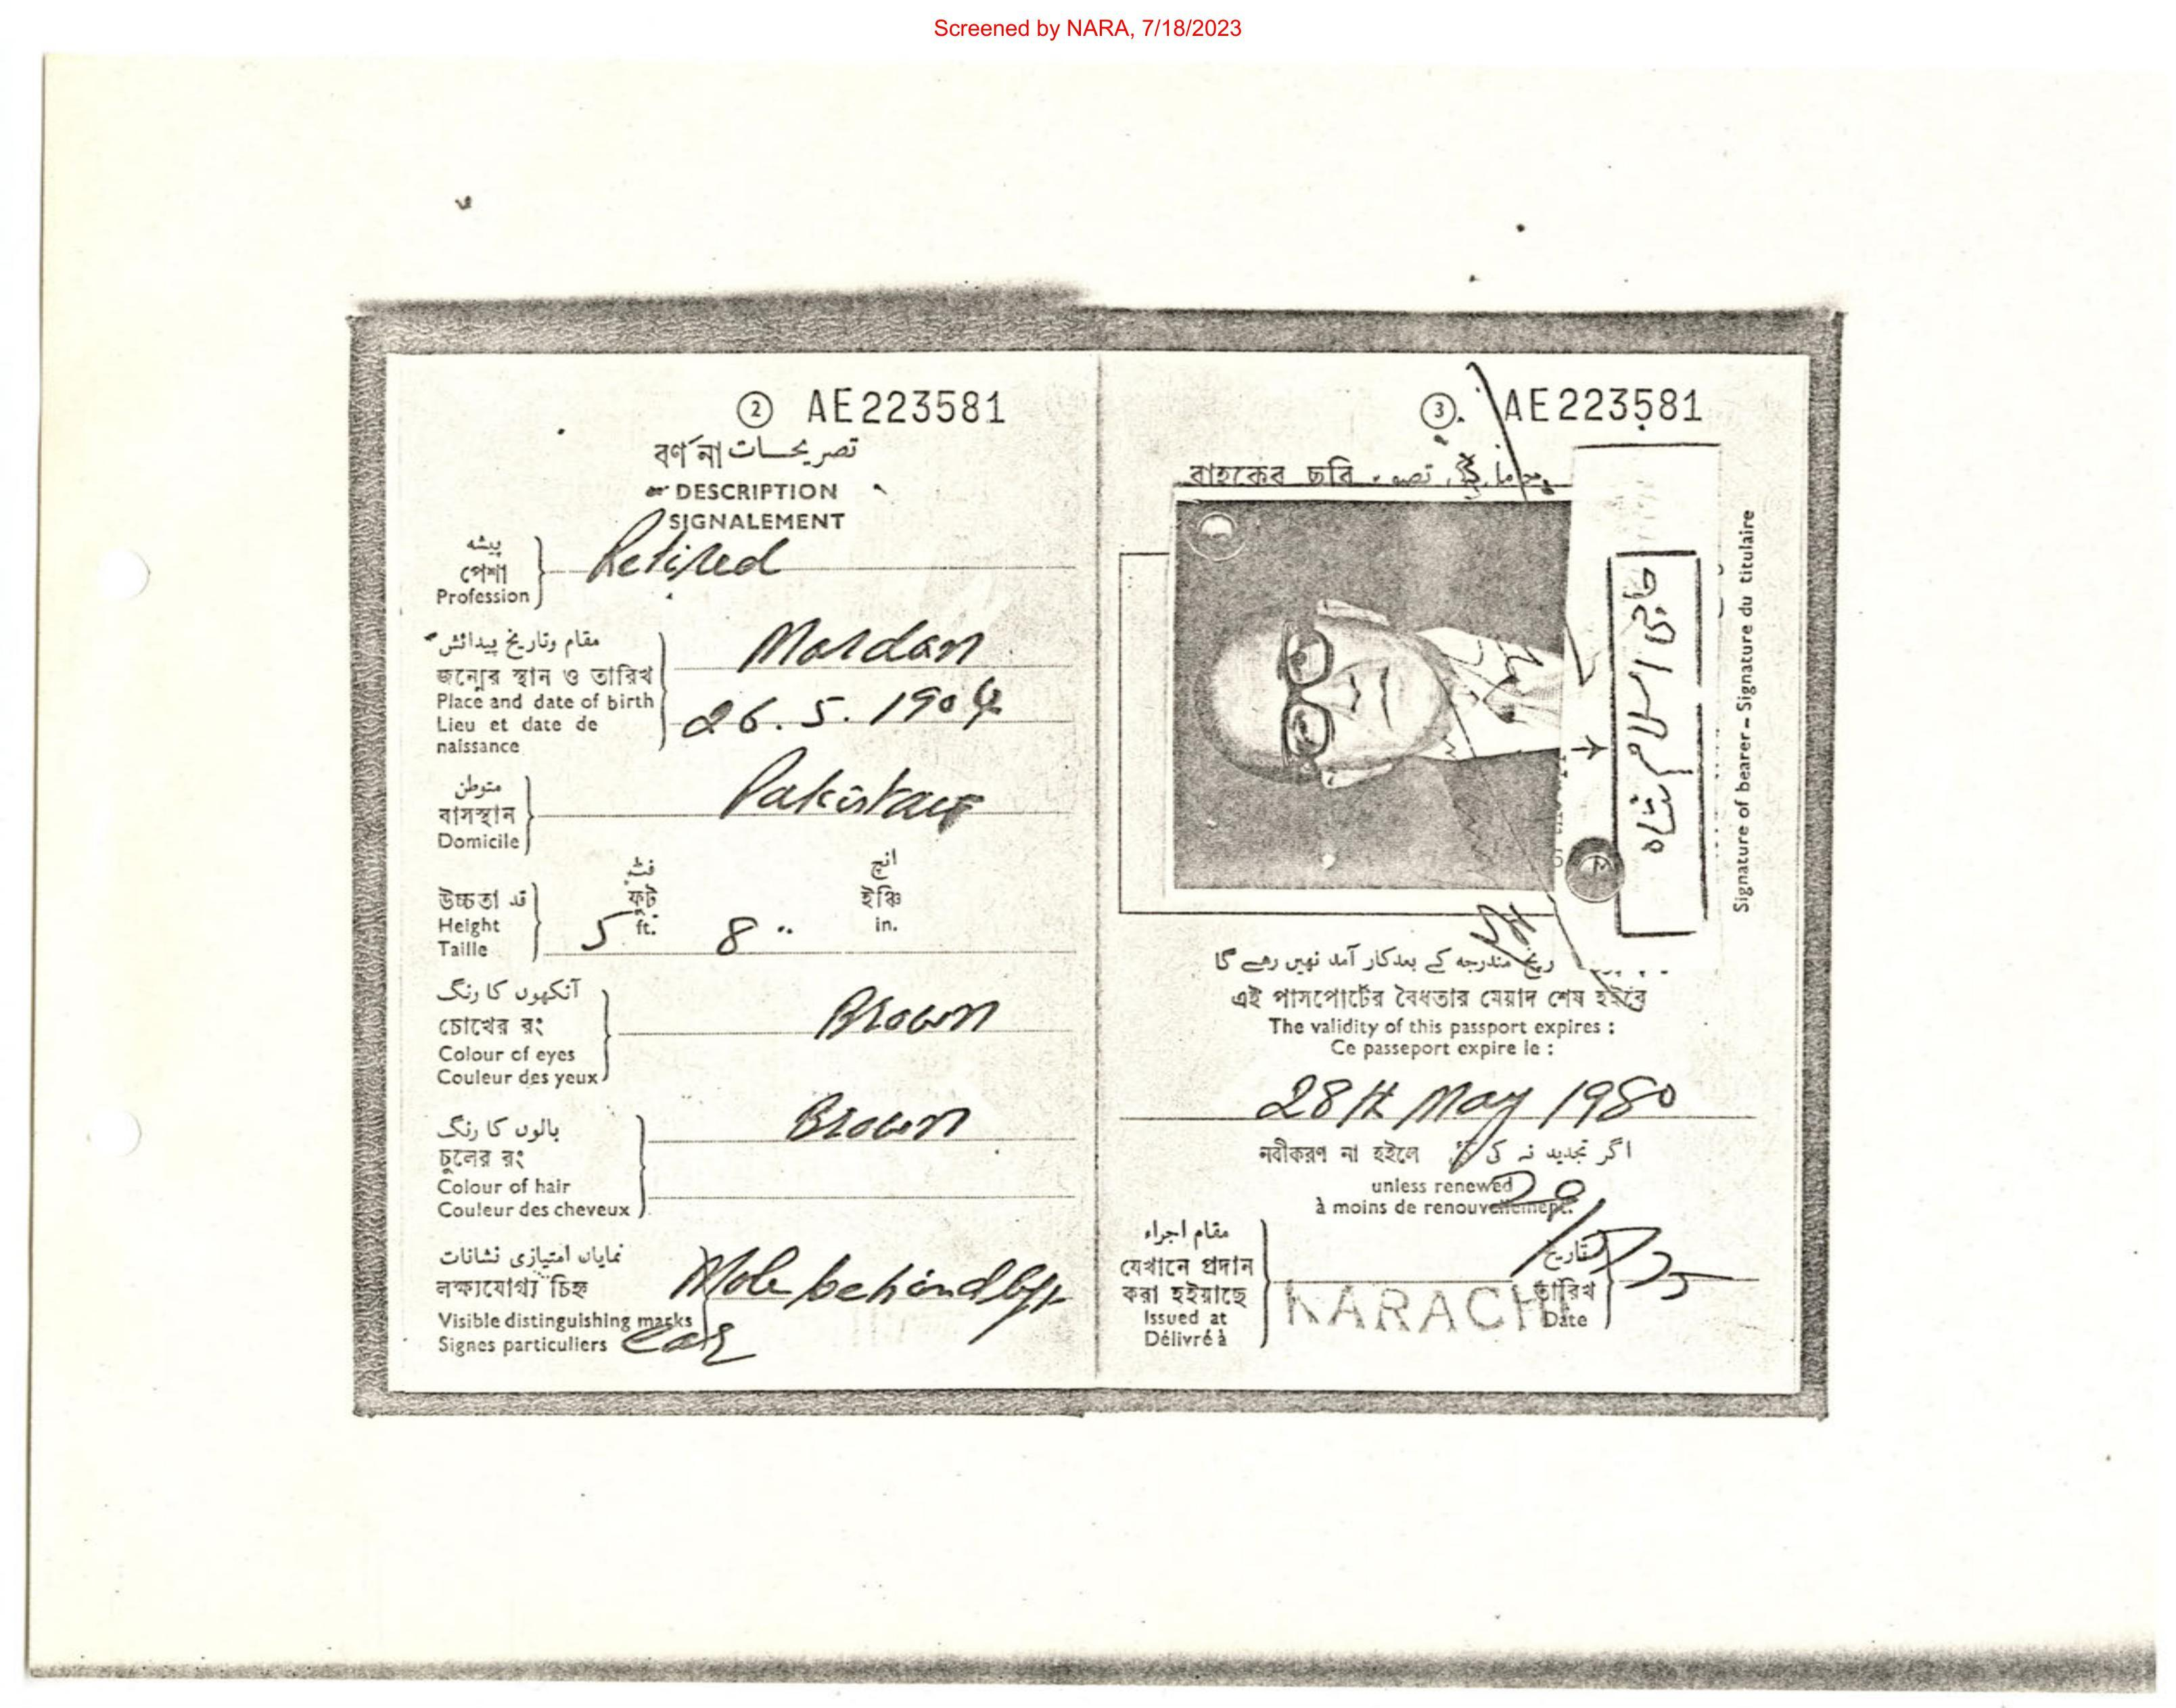 Screened by NARA, 7/18/2023
② AE223581
বর্ণনা تصریحات
DESCRIPTION
SIGNALEMENT
پیشہ
পেশা
Profession
Retired
مقام وتاریخ پیدائش
জন্মের স্থান ও তারিখ
Place and date of birth
Lieu et date de
naissance
Mardan
26.5.1904
متوطن
বাসস্থান
Domicile
Pakistan
فٹ انچ
ফুট ইঞ্চি
উচ্চতা قد
Height ft. in.
Taille
5 8"
آنکھوں کا رنگ
চোখের রং
Colour of eyes
Couleur des yeux
Brown
بالوں کا رنگ
চুলের রং
Colour of hair
Couleur des cheveux
Brown
نمایاں امتیازی نشانات
লক্ষ্যযোগ্য চিহ্ন
Visible distinguishing marks
Signes particuliers
Mole behind left
ear
③ AE223581
বাহকের ছবি
Signature of bearer – Signature du titulaire
مندرجہ کے بعد کار آمد نہیں رھے گا
এই পাসপোর্টের বৈধতার মেয়াদ শেষ হইবে
The validity of this passport expires :
Ce passeport expire le :
28th May 1980
নবীকরণ না হইলে اگر تجدید نہ کی
unless renewed
à moins de renouvellement.
مقام اجراء
যেখানে প্রদান
করা হইয়াছে
Issued at
Délivré à
KARACHI
تاریخ
তারিখ
Date